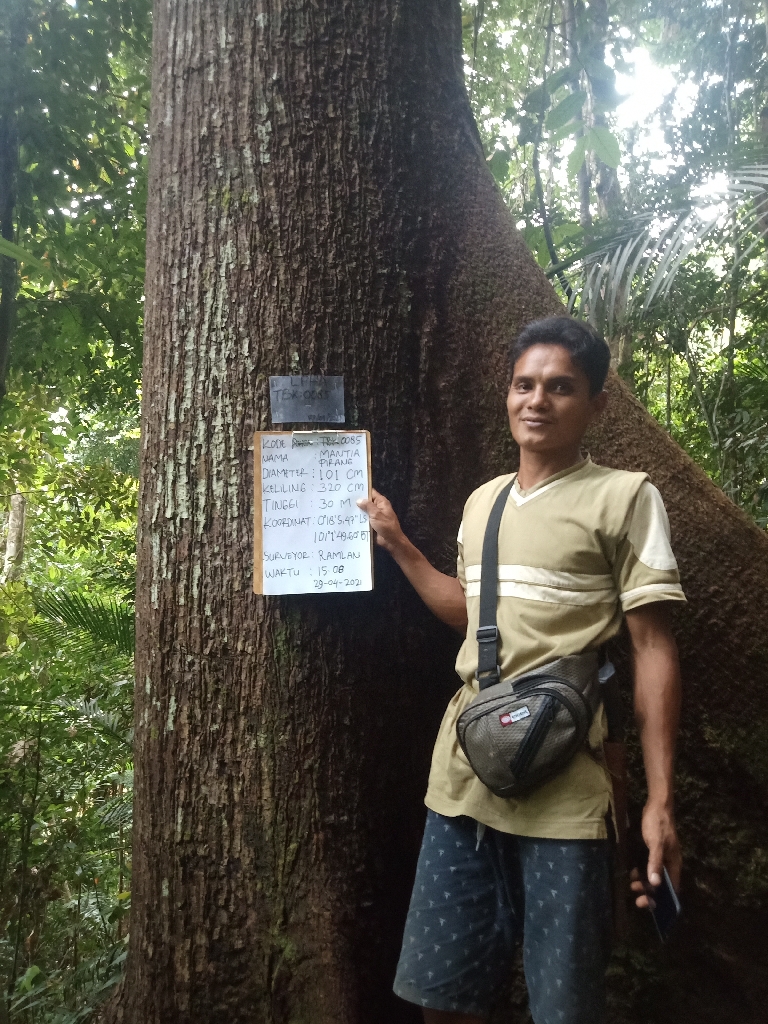 TBK 0085
KODE : TBK 0085
NAMA : MANTIA
PIRANG
DIAMETER : 101 CM
KELILING : 320 CM
TINGGI : 30 M
KOORDINAT : 0°18'5.47" LS
101°1'49.60" BT
SURVEYOR : RAMLAN
WAKTU : 15:08
29-04-2021